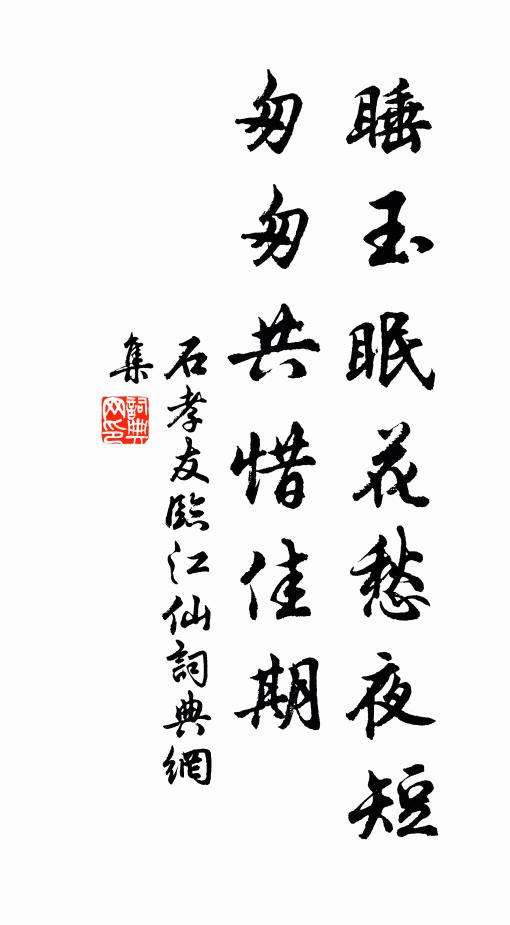 睡玉眠花愁夜短
匆匆共惜佳期
石孝友臨江仙詞典網
集
詞典網印